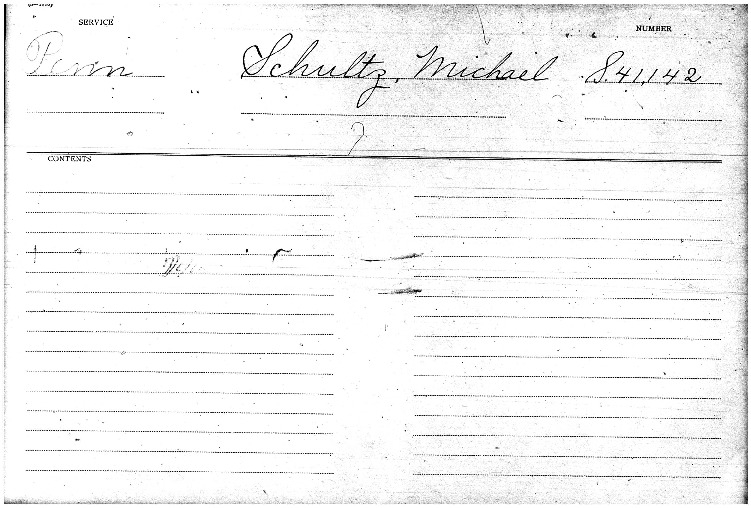 SERVICE
NUMBER
Penn Schultz, Michael S.41,142
7
CONTENTS